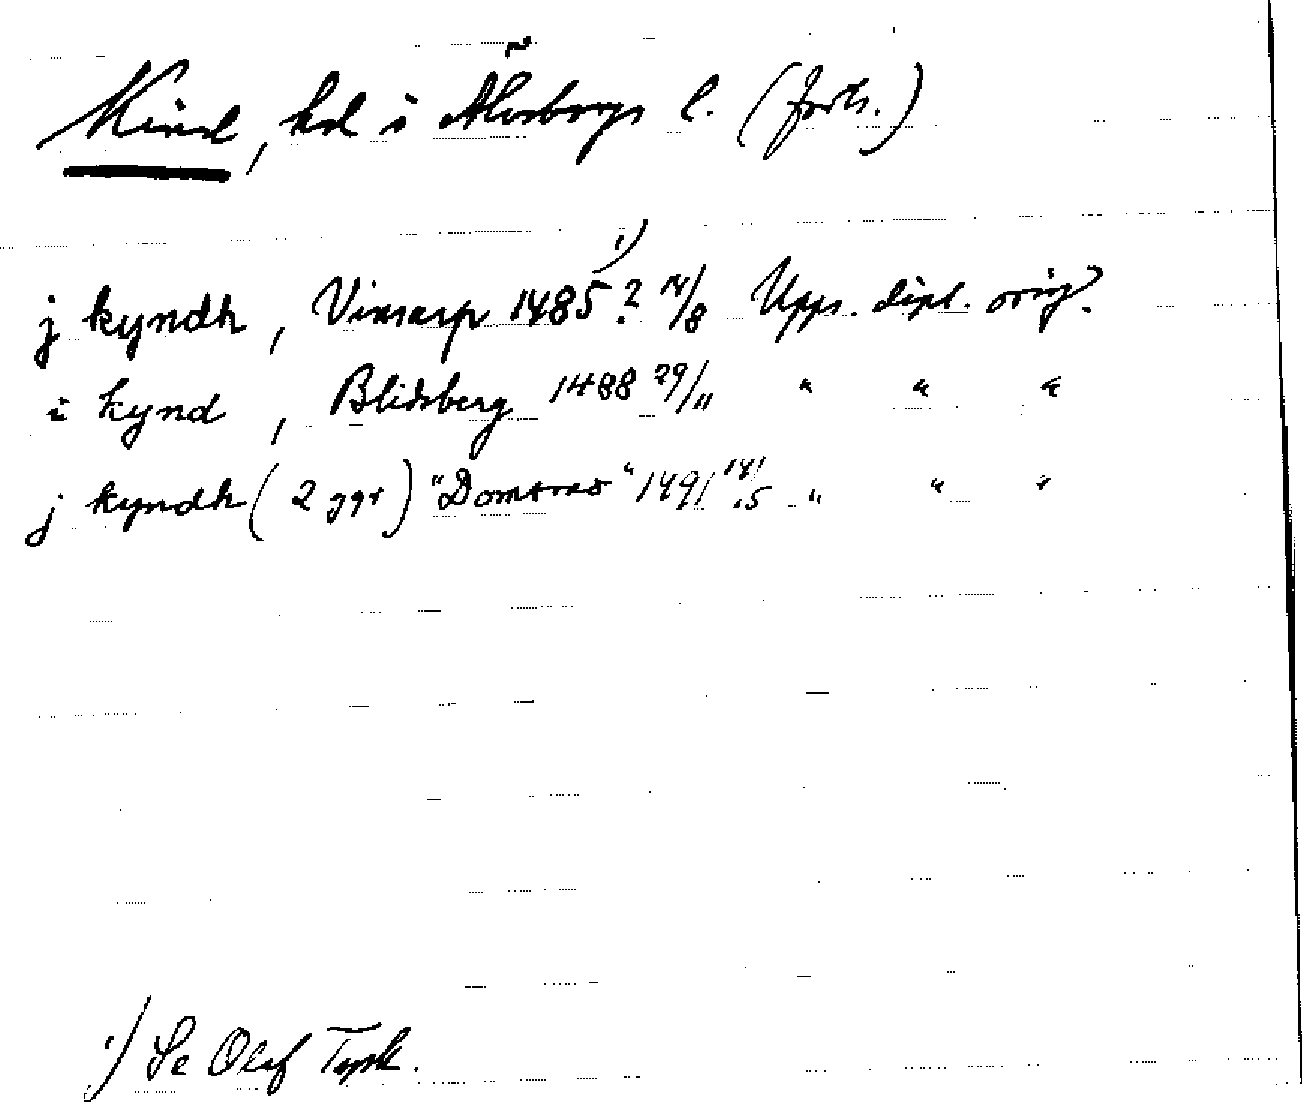 Kind, hd i Älvsborgs l. (forts.)
j kyndh, Vinsarp 1485? 1) 14/8 Upps. dipl. orig.
i kynd, Blidsberg 1488 29/11 " " "
j kyndh (2 ggr) "Domsnes" 1491 14/5 " " "
1) Se Olof Tysk.